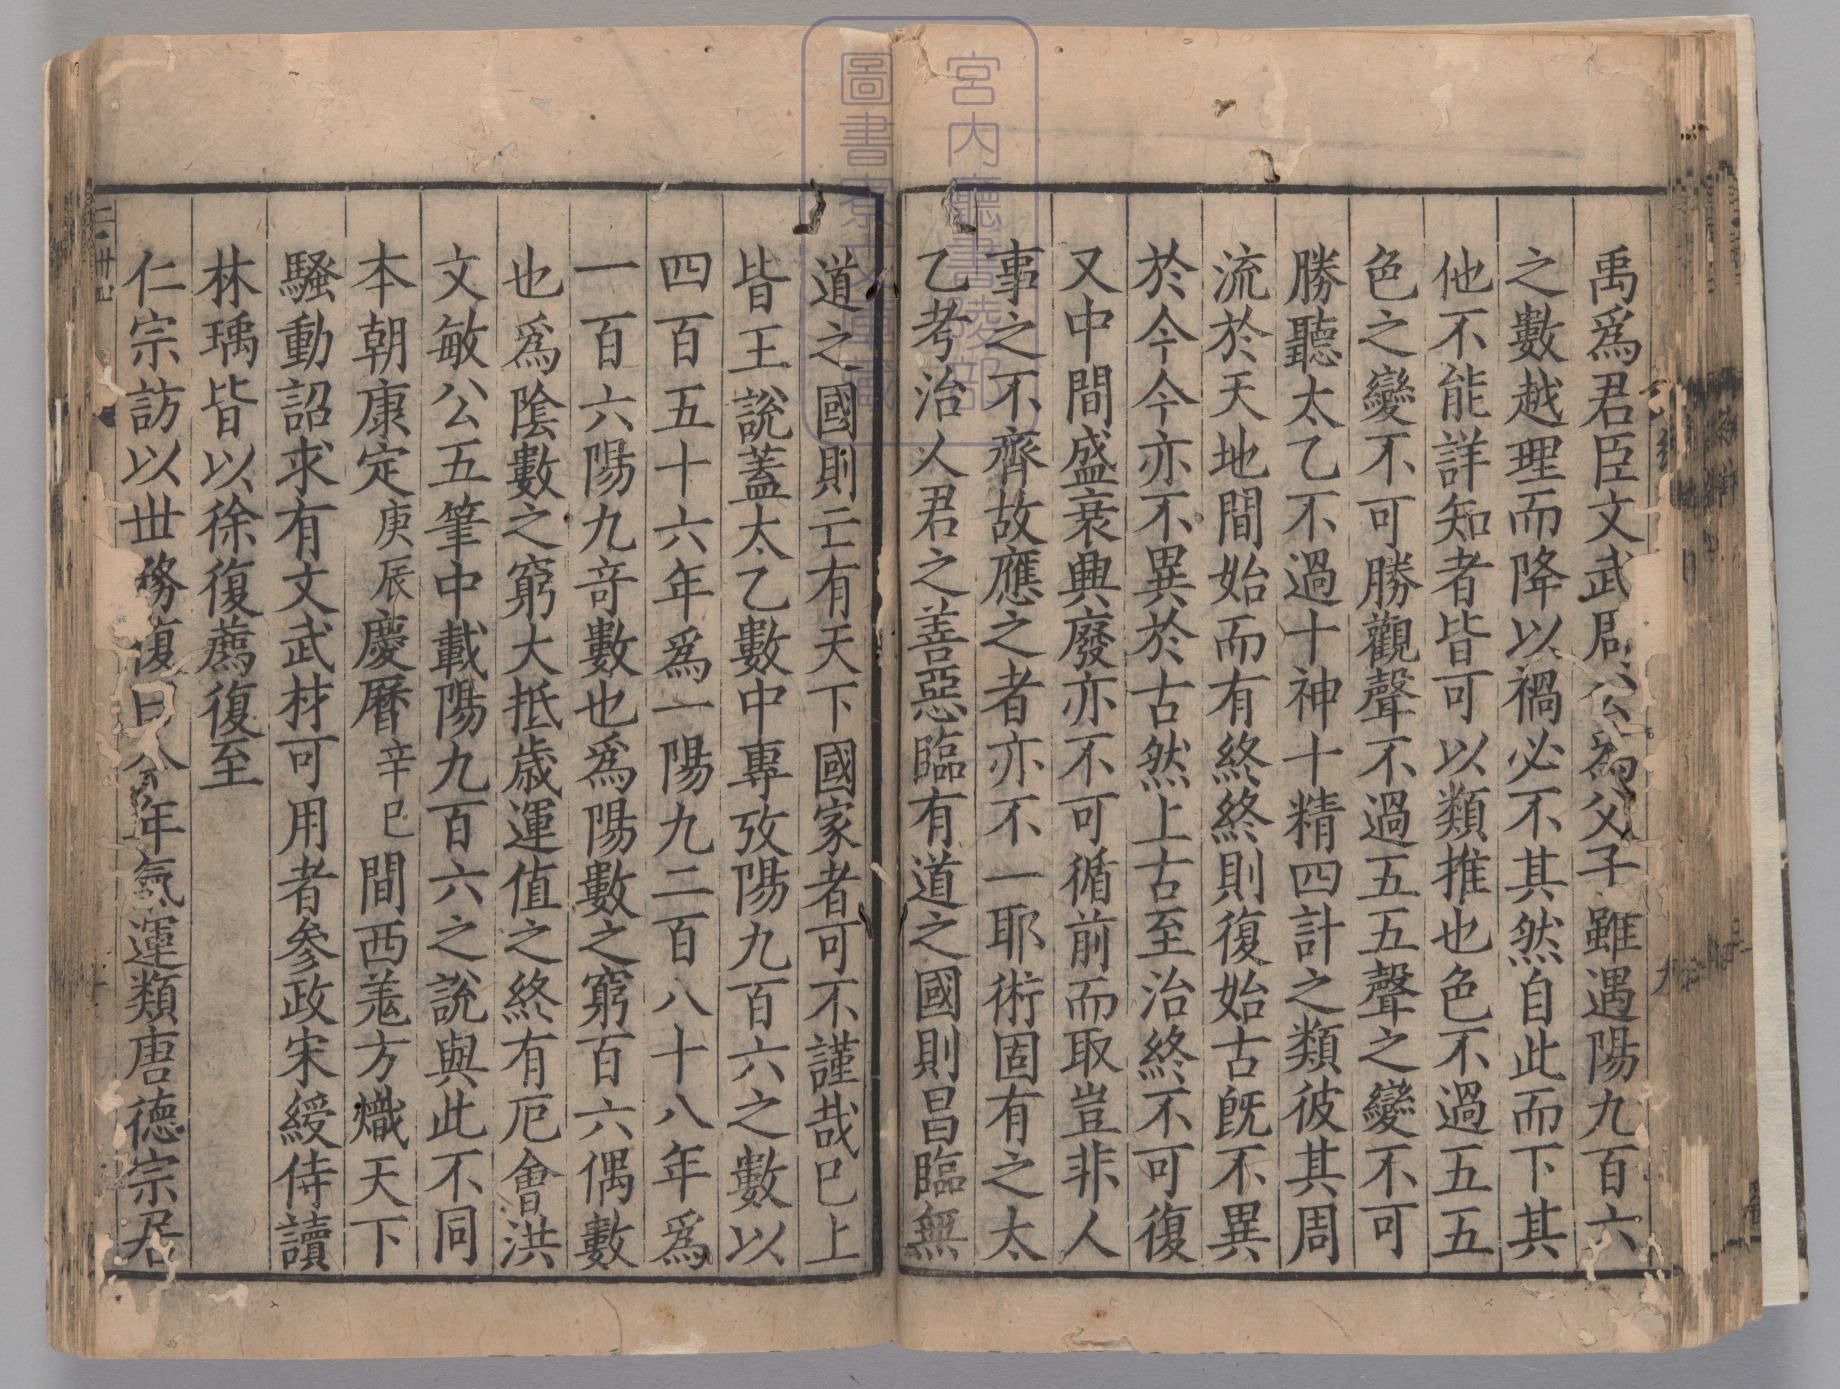 禹爲君臣文武周公爲父子雖遇陽九百六
之數越理而降以禍必不其然自此而下其
他不能詳知者皆可以類推也色不過五五
色之變不可勝觀聲不過五五聲之變不可
勝聽太乙不過十神十精四計之類彼其周
流於天地間始而有終終則復始古旣不異
於今今亦不異於古然上古至治終不可復
又中間盛衰興廢亦不可循前而取豈非人
事之不齊故應之者亦不一耶術固有之太
乙考治人君之善惡臨有道之國則昌臨無
道之國則亡有天下國家者可不謹哉已上
皆王說蓋太乙數中專攷陽九百六之數以
四百五十六年爲一陽九二百八十八年爲
一百六陽九竒數也爲陽數之窮百六偶數
也爲陰數之窮大抵歲運值之終有厄會洪
文敏公五筆中載陽九百六之說與此不同
本朝康定庚辰慶曆辛巳間西羌方熾天下
騷動詔求有文武材可用者參政宋綬侍讀
林瑀皆以徐復薦復至
仁宗訪以世務復曰今年氣運類唐德宗居
宮內廳書陵部
圖書寮文庫藏